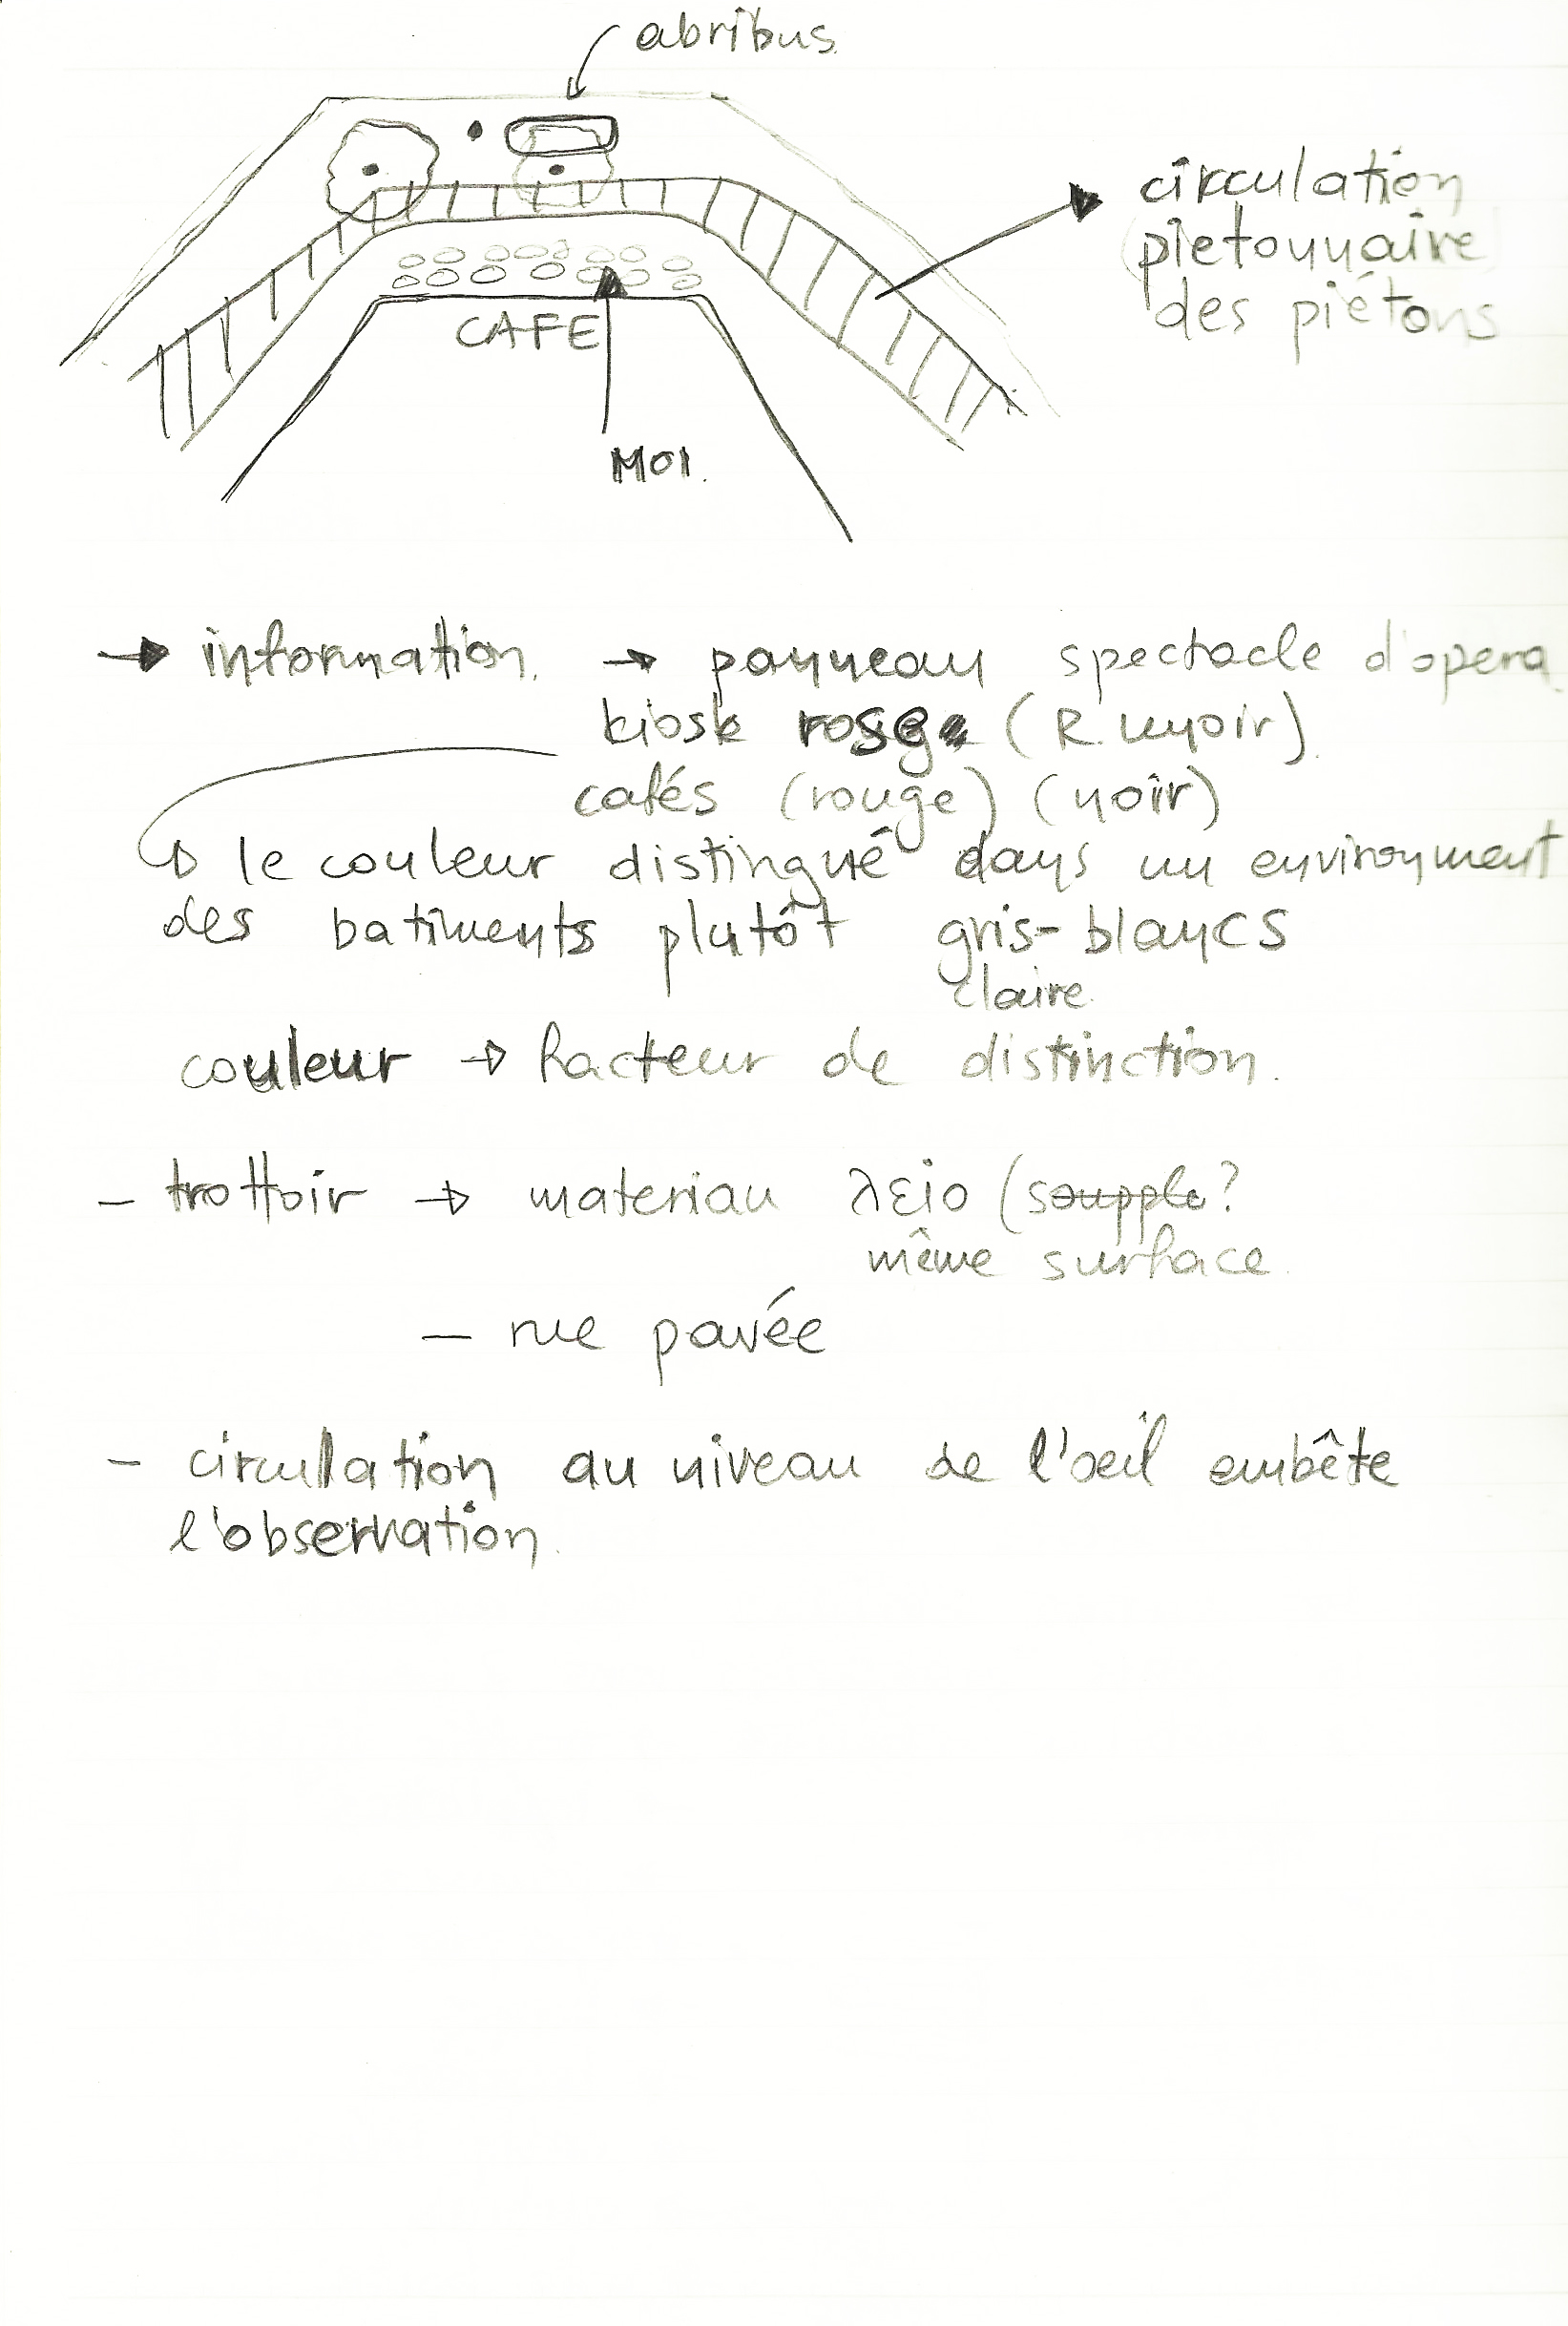 abribus
circulation
(pietonnaire)
des piétons
CAFE
MOI.
→ information. → panneau spectacle d'opera.
kiosk rose (R. )
cafés (rouge) (noir)
↳ le couleur distingué dans un environment
des batiments plutôt gris-blancs
claire.
couleur → facteur de distinction.
- trottoir → materiau λειο (souple?
même surface.
- rue pavée
- circulation au niveau de l'oeil embête
l'observation.